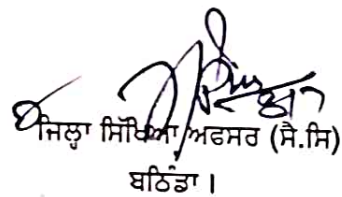 ਜਿਲ੍ਹਾ ਸਿੱਖਿਆ ਅਫਸਰ (ਸੈ.ਸਿ)
ਬਠਿੰਡਾ ।